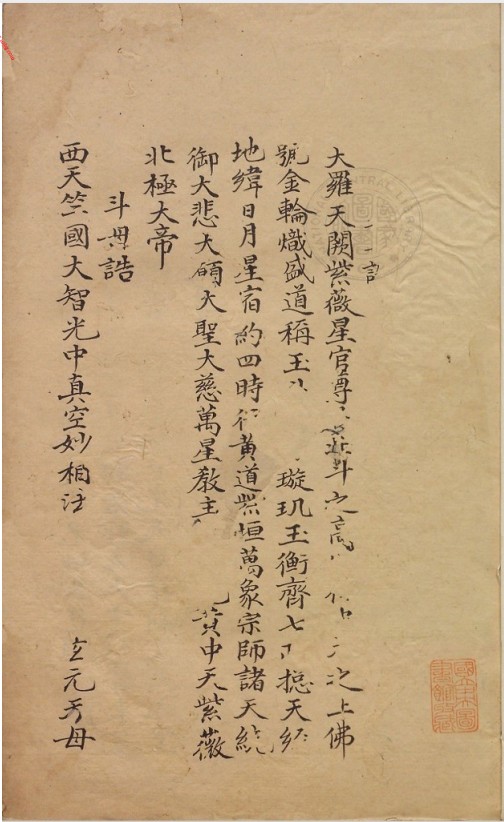 言
大羅天闕紫薇星官尊 北斗之高 之上佛
號金輪熾盛道稱玉 璇玑玉衡齊七 揔天
地緯日月星宿約四時行黄道 垣萬象宗師諸天統
御大悲大願大聖大慈萬星教主 中天紫薇
北極大帝
斗母誥
西天竺國大智光中真空妙相法 玄元天母